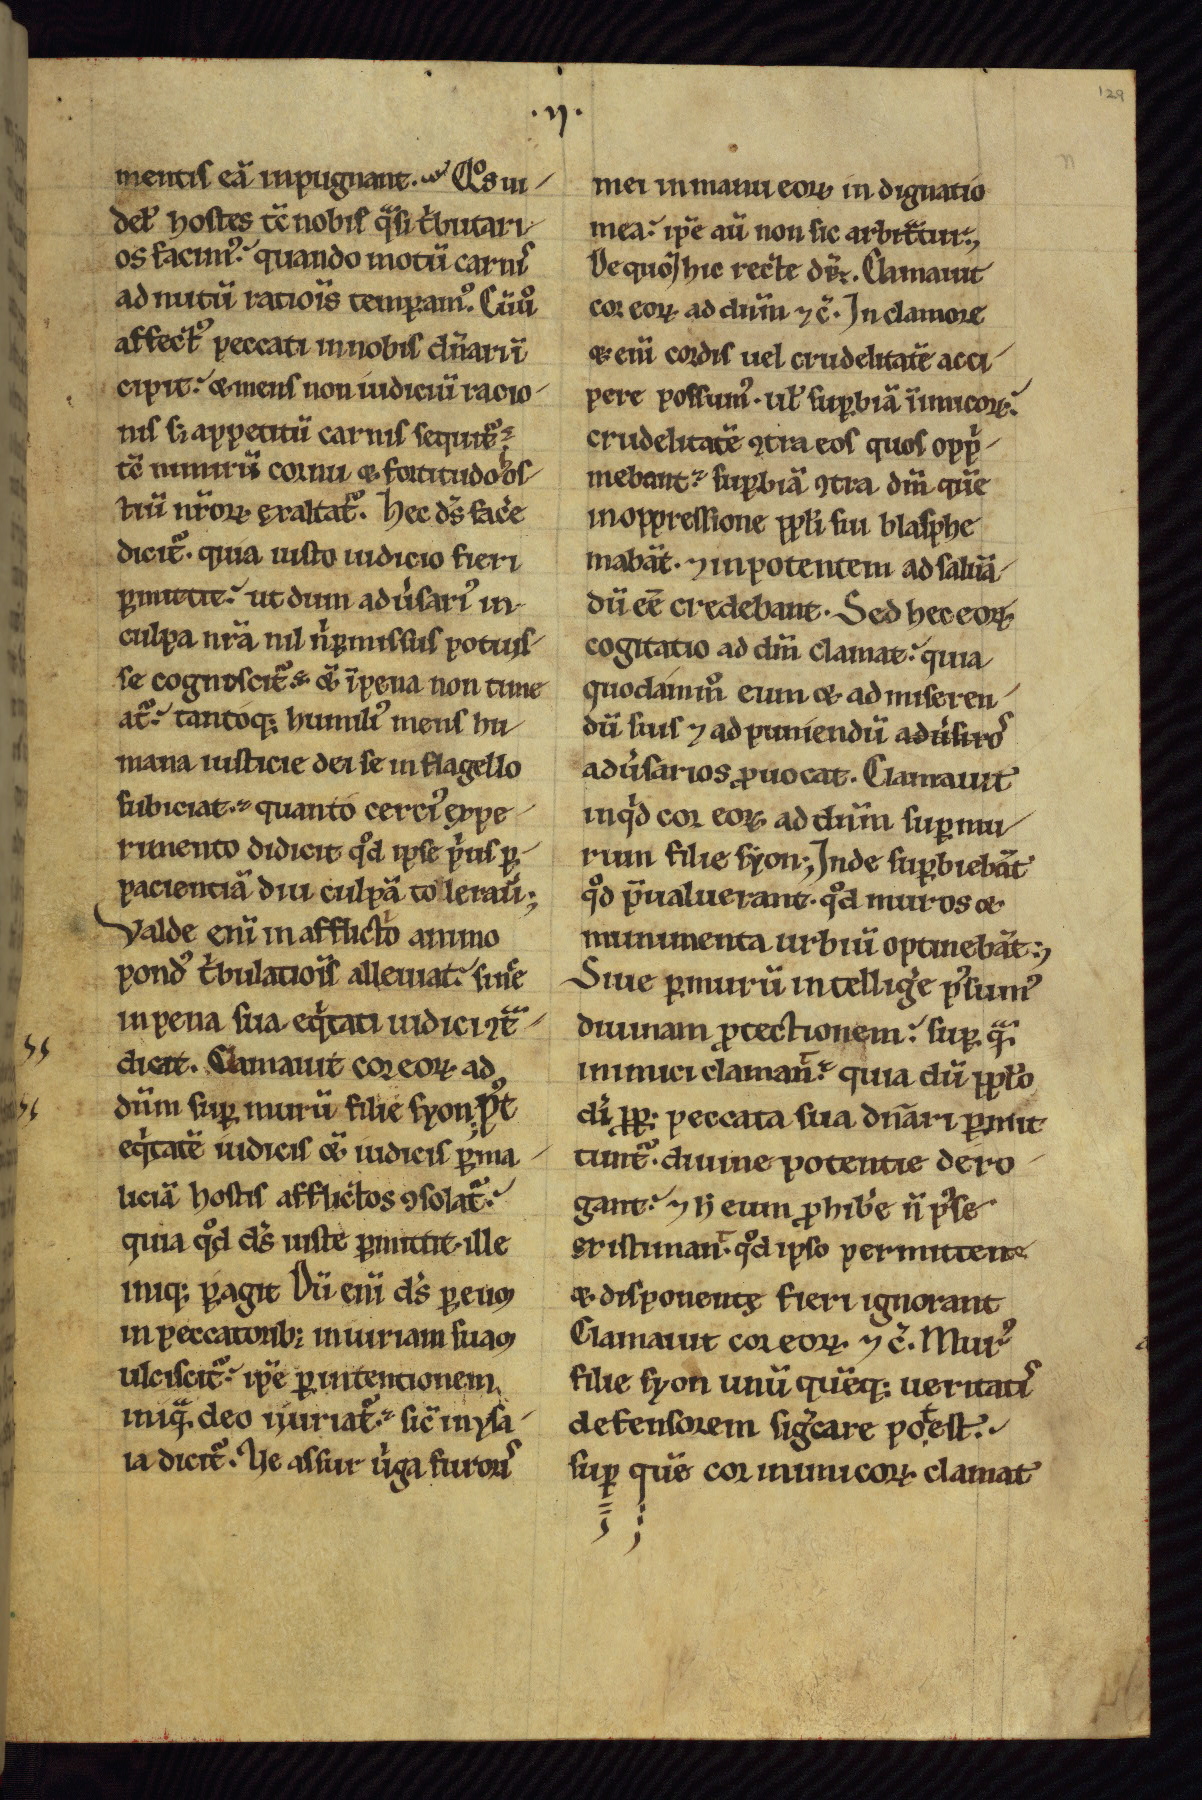 129
.II.
mentis eã inpugnant. Qͦs ui-
delꝫ hostes tc̃ nobis q̃si tͥbutari-
os facimꝰ. quando motũ carnıͥs
ad nutũ ratiõis temperamꝰ. Cũ u͛o
affectꝰ peccati in nobis dñari ĩ-
cipit. & mens non iudiciũ racio-
nis sꝫ appetitũ carnis sequit᷑.
tc̃ nimirũ cornu & fortitudo os-
tiũ nr̃oꝝ exaltat᷑. Hec dñs face̾
dicit᷑. quia iusto iudicio fieri
ꝑmittit. ut dum adu͛sariꝰ in
culpa nr̃a nil ñ ꝑmissus potuis-
se cognoscit᷑. & ĩ pena non time
at᷑. tantoqꝫ humiliꝰ mens hu
mana iusticie dei se in flagello
subiciat. quanto cerciꝰ expe-
rimento didicit qͦd ipse pͥus ꝑ
pacienciã diu culpã tolerau͛;
Valde eni᷑ in afflicto animo
pondꝰ tͥbulatiõis alleuiat. sin̾e
in pena sua eqͥtati iudici ꝯtͣ-
dicat. Clamauit cor eoꝝ ad
dñm suꝑ murũ filie syon; Pꝰt
eqͥtatẽ iudicis & iudicis ꝑ ma-
liciã hostis afflictos ꝯsolat᷑.
quia qͦd dñs iuste ꝑmittit. ille
iniqꝫ ꝑagit Dũ eni᷑ dñs ꝑ euꝫ
in peccatoribꝫ iniuriam suaꝫ
ulciscit᷑. ipẽ ꝑ intentionem
iniqͣ. deo iniuriat᷑. sic̃ in ysa-
ia dicit᷑. He assur uͥga furorıͥs
mei in manu eoꝝ in dignatio
mea. ipẽ aũ non sic arbitͣtur;
De quo hic recte dr̃. Clamauit
cor eoꝝ ad dñm ⁊ c̃. In clamore
& eni᷑ cordis uel crudelitatẽ acci-
pere possumꝰ. ul̃ suꝑbiã ĩimicoꝝ.
crudelitatẽ ꝯtra eos quos oppͥ-
mebant. suꝑbiã ꝯtra dm̃ quẽ
in oppressione ppl̃i sui blasphe
mabãt. ⁊ inpotentem ad saluã-
dũ eẽ credebant. Sed hec eoꝝ
cogitatio ad dm̃ clamat. quia
quodãmͦ eum & ad miseren-
dũ suis ⁊ ad puniendũ adu͛sꝰ ros
adu͛sarios ꝓuocat. Clamauit
inqͥd cor eoꝝ ad dñm suꝑ mu-
rum filie syon; Inde suꝑbiebãt
qͦd p̃ualuerant. qͦd muros &
munimenta urbiũ optinebãt;
Siue ꝑ murũ intellige̾ pͦsumꝰ
diuinam ꝓtectionem. suꝑ qͣ.
inimici clamant. quia dũ ppl̃o
di ꝓpꝫ peccata sua dñari ꝑmit
tunt᷑. diuine potentie dero-
gant. ⁊ h̃ eum ꝓhibe̾ ñ pͦsse
eristimant. qͦd ipso permittente
& disponente fieri ignorant
Clamauit cor eoꝝ ⁊ c̃. Murꝰ
filie syon unũ quẽqꝫ ueritatıͥs
defensorem sigͥcare potest.
suꝑ quẽ cor inimicoꝝ clamat